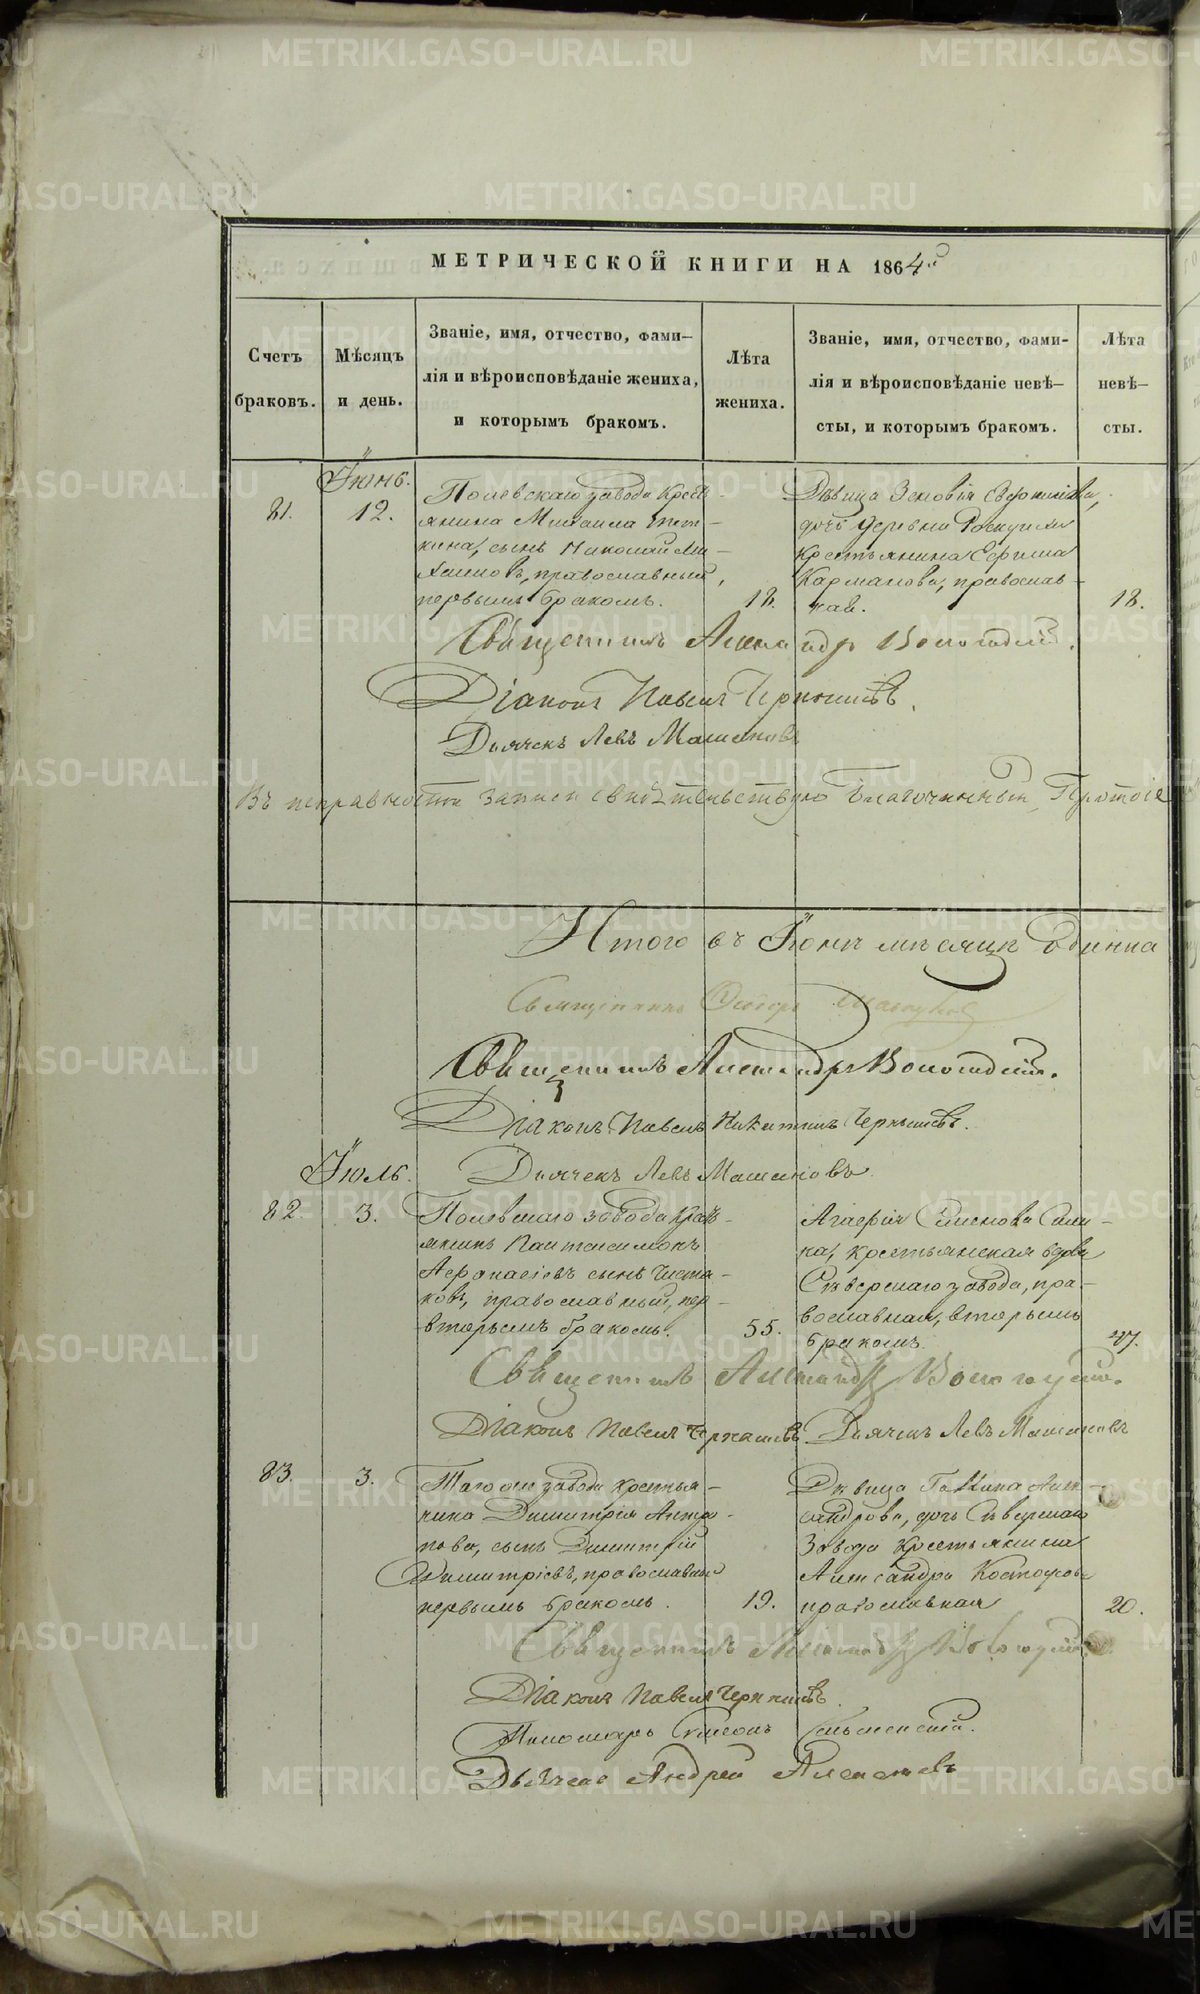 МЕТРИЧЕСКОЙ КНИГИ НА 1864й
Счетъ
браковъ.
Мѣсяцъ
и день.
Званіе, имя, отчество, фами-
лія и вѣроисповѣданіе жениха,
и которымъ бракомъ.
Лѣта
жениха.
Званіе, имя, отчество, фами-
лія и вѣроисповѣданіе невѣ-
сты, и которымъ бракомъ.
Лѣта
невѣ-
сты.
Іюнь.
81.
12.
Полевскаго завода крест-
янина Михаила
сынъ Николай Ми-
хаиловъ, православный,
первымъ бракомъ.
18.
Дѣвица Зеновія
дочь деревни
крестьянина Ефима
Карманова, православ-
ная.
18.
Священникъ Александръ Вологодскій.
Діаконъ Павелъ Чернышевъ.
Дьячекъ Левъ
Въ исправности записи свидѣтельствую Благочинный, Протоіе
Итого въ Іюнѣ мѣсяцѣ одинна
Священникъ
Священникъ Александръ Вологодскій.
Діаконъ Павелъ Никитинъ Чернышевъ.
Дьячекъ Левъ
Іюль.
82.
3.
Полевскаго завода крест-
янинъ Пантелеимонъ
Афонасіевъ сынъ
православный,
вторымъ бракомъ.
55.
Агафія Семенова
крестьянская вдова
Сѣверскаго завода, пра-
вославная, вторымъ
бракомъ.
47.
Священникъ Александръ Вологодскій.
Діаконъ Павелъ Чернышевъ
Дьячекъ Левъ
83.
3.
Тагоже завода крестья-
нина Димитрія Антро-
пова, сынъ Димитрій
Димитріевъ, православный
первымъ бракомъ.
19.
Дѣвица Галина Алек-
сандрова, дочь Сѣверскаго
Завода крестьянина
Александра
православная
20.
Священникъ Александръ Вологодскій.
Діаконъ Павелъ Чернышевъ.
Пономарь Симеонъ
Дьячекъ Андрей Алексеевъ
METRIKI.GASO-URAL.RU